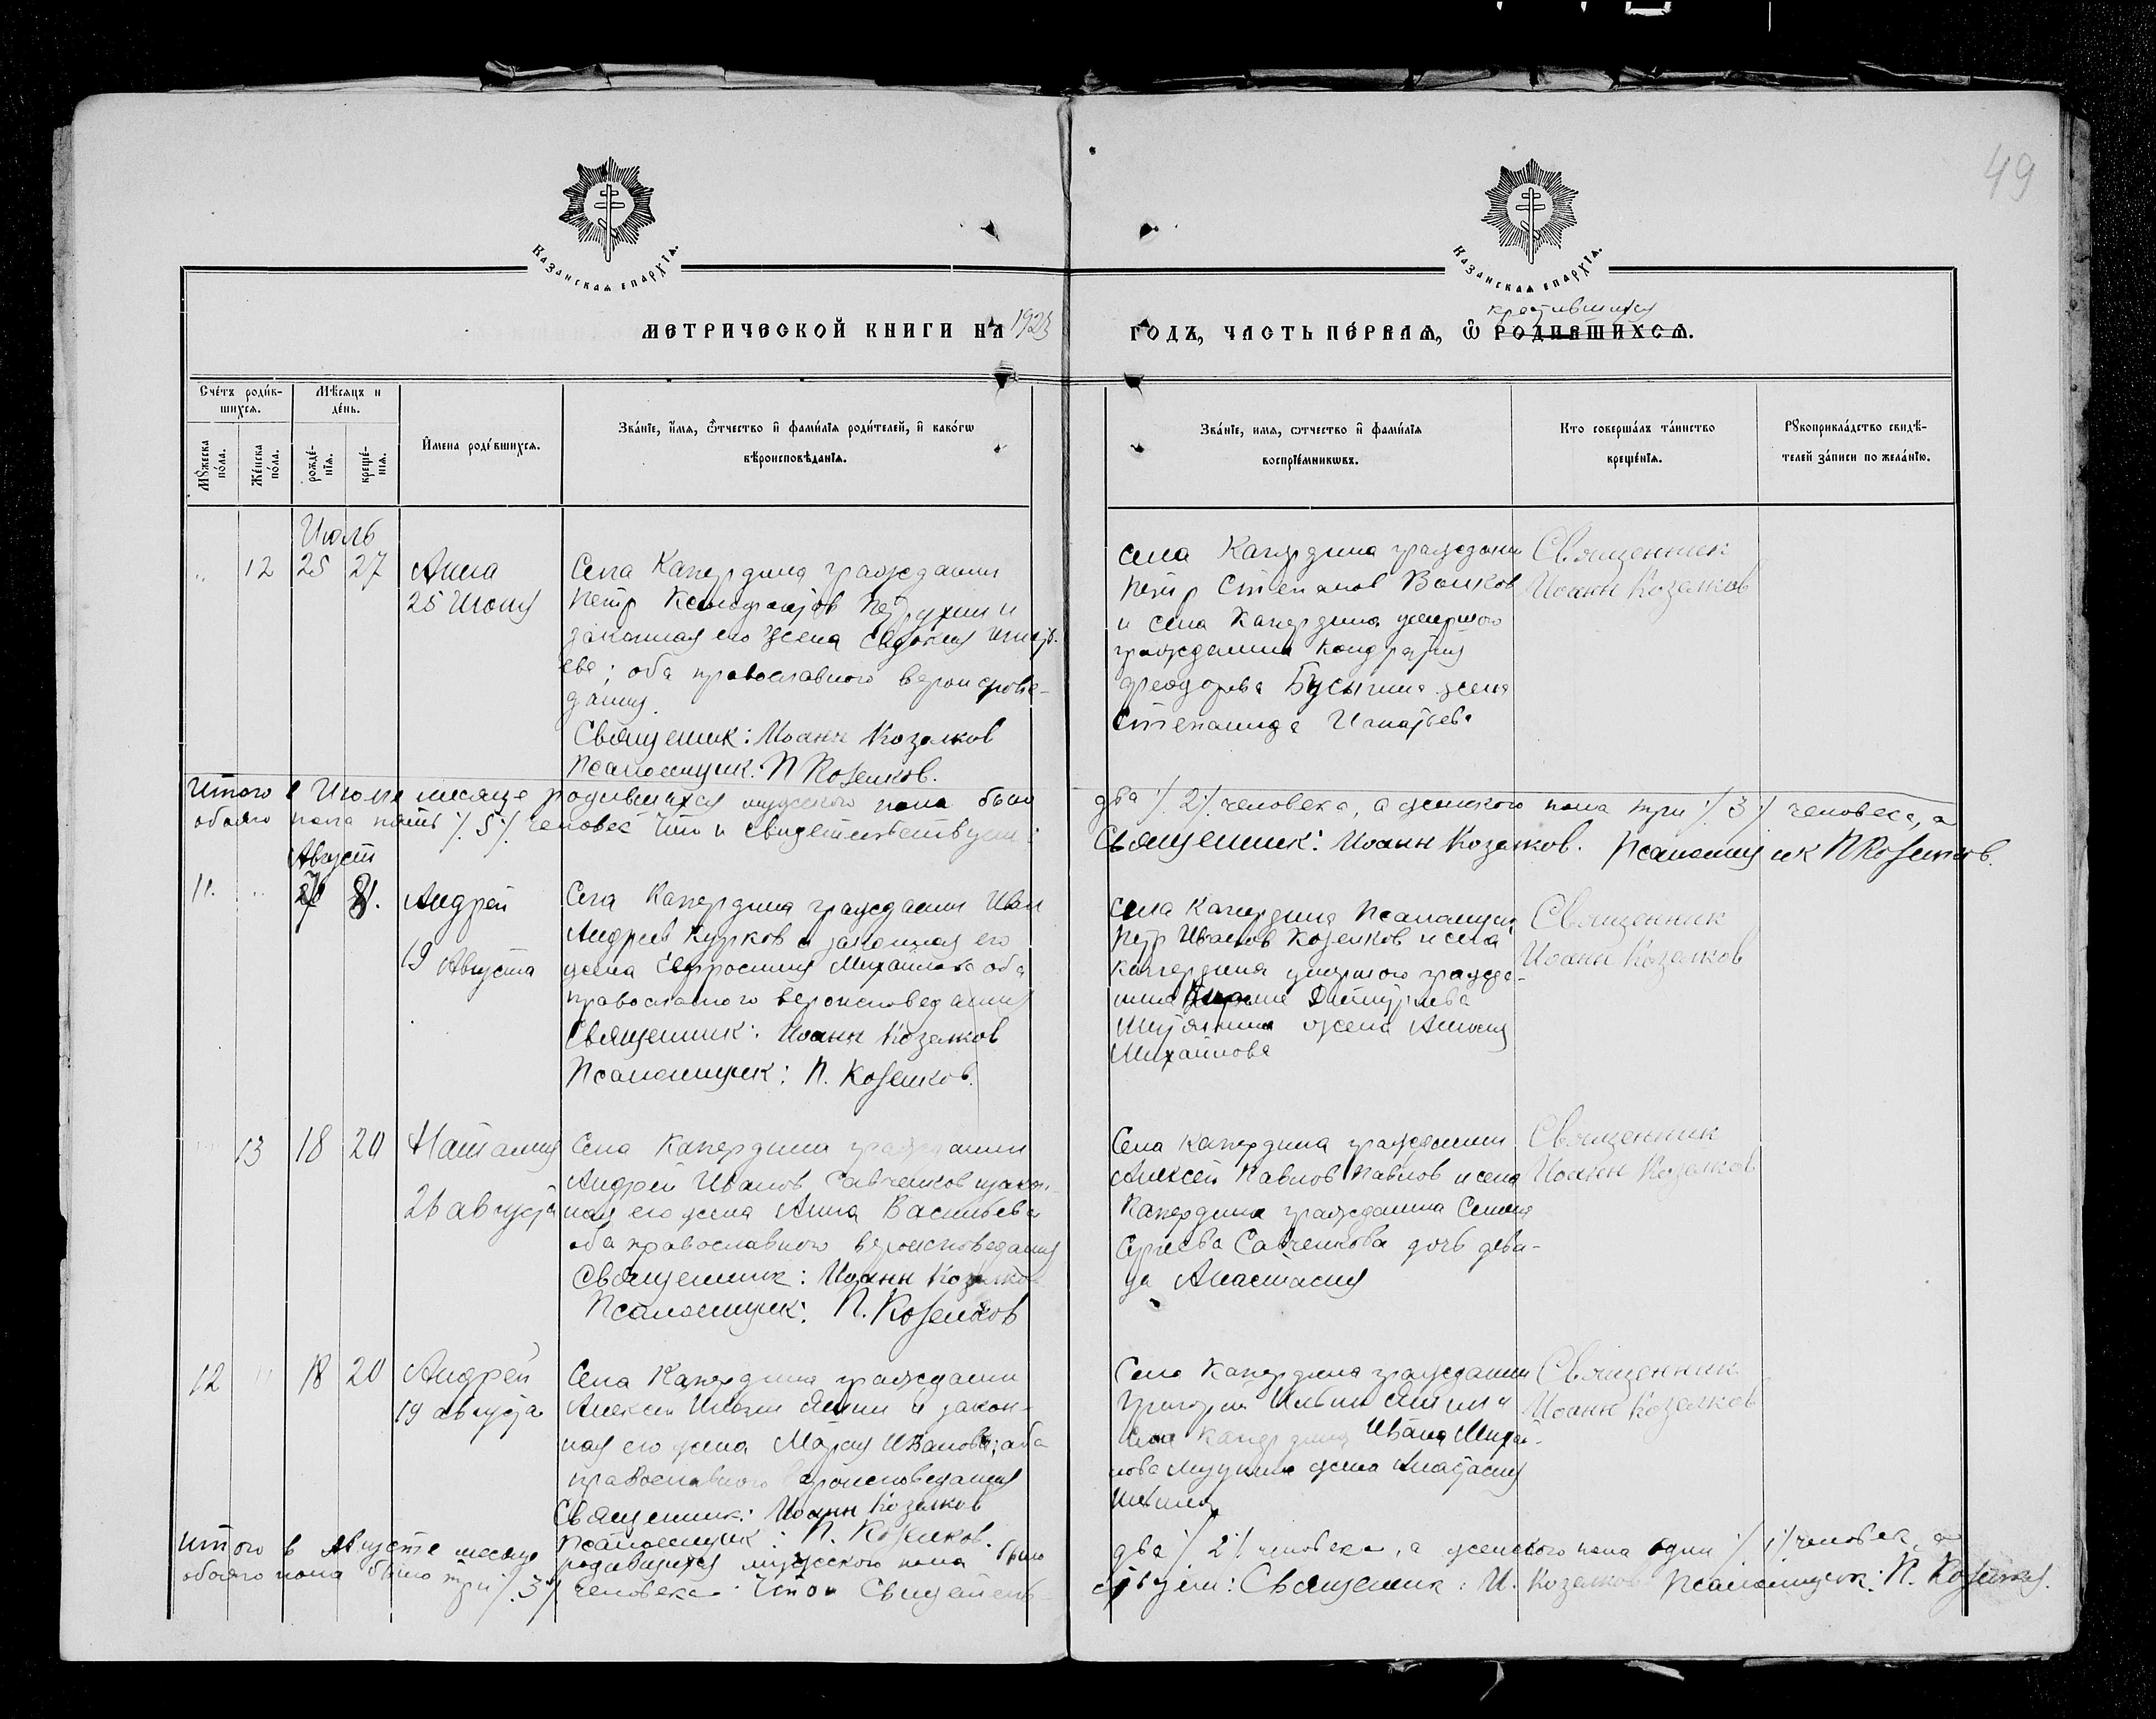 49
Казанская епархїѧ.
Казанская епархїѧ.
крестившихся
МЕТРИЧЕСКОЙ КНИГИ НА 1923
ГОДЪ, ЧАСТЬ ПЕ́РВАѦ, Ѡ҆ РОДИ́ВШИХСѦ.
Сче́тъ роди́в-
шихсѧ.
Мꙋ́жеска по́ла.
Же́нска по́ла.
Мѣ́сѧцъ и
де́нь.
рожде́-
нїѧ.
креще́-
нїѧ.
И҆мена роди́вшихсѧ.
Зва́нїе, и҆́мѧ, ѻ҆́тчество и҆ фами́лїѧ роди́телей, и҆ како́гѡ
вѣроисповѣ́данїѧ.
Зва́нїе, имѧ, ѻтчество и҆ фами́лїѧ
воспрїе́мникѡвъ.
Кто соверша́лъ та́инство
креще́нїѧ.
Рꙋкоприкла́дство свидѣ́-
телей за́писи по жела́нїю.
Июль
12 25 27 Анна
25 Июля
Села Капердина гражданин
Петр
законная его жена Евдокия Игнать-
ева; оба православного вероиспове-
дания.
Священник: Иоанн Козелков
Псаломщик: П Козелков.
села Капердина гражданин
Петр Степанов Волков
и села Капердина умершого
гражданина Кондратия
Феодорова Бусыгина жена
Степанида Игнатьева
Священник
Иоанн Козелков
Итого в Июле месяце родившихся мужского пола было
два /.2/. человека, а женского пола три /.3/. человека, а
обоего пола пять /.5/. человек Что и свидетельствуем:
Священник: Иоанн Козелков. Псаломщик П Козелков.
Август
11. Андрей
19 Августа
Села Капердина гражданин Иван
Андреев Курков и законная его
жена Евфросиния Михайлова оба
православного вероисповедания
Священник: Иоанн Козелков
Псаломщик: П. Козелков.
Села Капердина Псаломщик
Петр Иванов Козелков и села
Капердина умершого гражда-
нина Димитриева
жена
Михайлова
Священник
Иоанн Козелков
13 18 20 Наталия
26 августа
Села Капердина гражданин
Андрей Иванов Савченков и закон-
ная его жена Анна Васильева
оба православного вероисповедания
Священник: Иоанн Козелков
Псаломщик: П. Козелков
Села Капердина гражданин
Алексей Павлов Павлов и села
Капердина гражданина Семена
Сергеева Савченкова дочь деви-
ца Анастасия
Священник
Иоанн Козелков
12 18 20 Андрей
19 августа
Села Капердина гражданин
Алексей Ильин и закон-
ная его жена Мария Иванова; оба
православного вероисповедания
Священник: Иоанн Козелков
Псаломщик: П. Козелков.
Села Капердина гражданин
Григорий Ильин и
села Капердина Ивана Михай-
лова жена Анастасия
Священник
Иоанн Козелков
Итого в Августе месяце родившихся мужского пола было
два /.2/. человека, а женского пола один /.1/. человек, а
обоего пола было три /.3/. человека. Что и Свидетель-
ствуем: Священник: И. Козелков Псаломщик: П. Козелков.